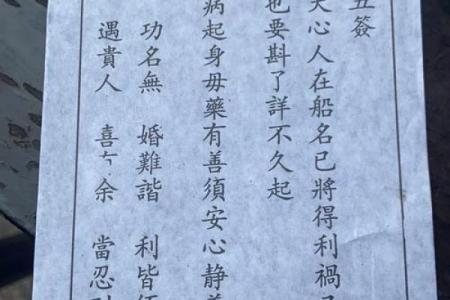 簽
心人在船名已將得利禍
也要斟了詳不久起
病起身毋藥有善須安心静
功名無 婚難諧 利皆
遇貴人 喜 余 當忍